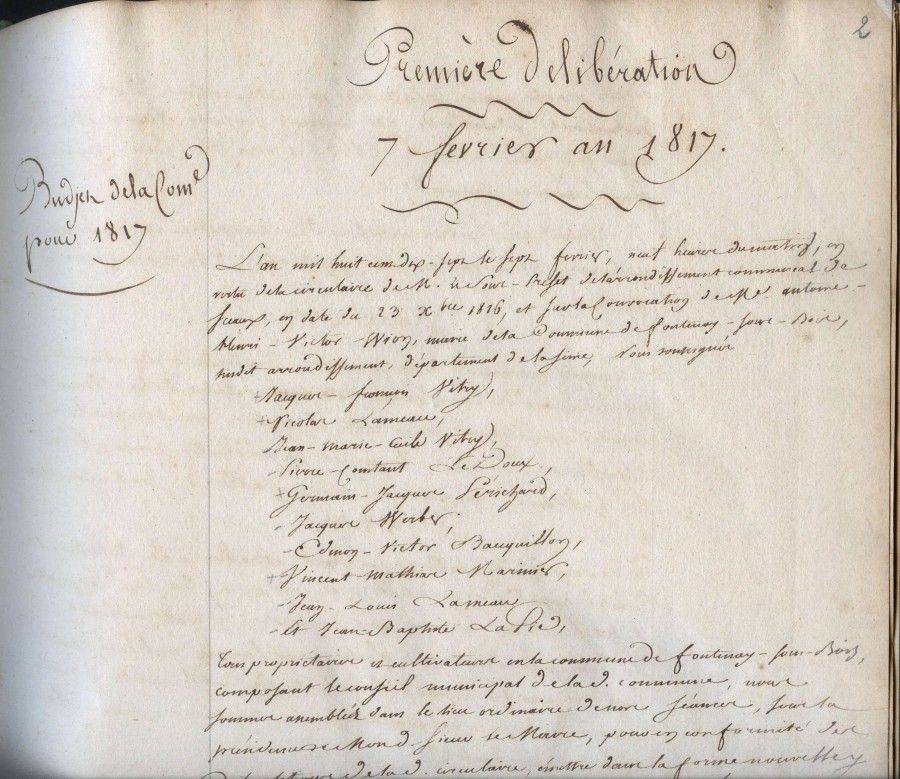 2
Première Délibération
7 février an 1817.
Budjet de la Com.e
pour 1817
L'an mil huit cent dix-sept le sept février, neuf heures du matin, en
vertu de la circulaire de M. le Sous-Préfet de l'arrondissement communal de
Sceaux, en date du 23 Xbre 1816, et sur la Convocation de Mr antoine-
Henri-Victor Wion, maire de la Commune de fontenay-sous-Bois,
susdit arrondissement, département de la seine, Nous soussignés
Jacques-françois Vitry,
Nicolas Lameau,
Jean-marie-Cecile Vitry,
Pierre-Constant LeDoux,
Germain-Jacques Périchard,
Jacques Werber,
Edmon-Victor Bacquillon,
Vincent-Mathias Marinier,
Jean-Louis Lameau
Et Jean-Baptiste LaPie,
Tous propriétaires et cultivateurs en la commune de fontenay-sous-Bois,
composant le conseil municipal de la d. commune, nous
sommes assemblés dans le lieu ordinaire de nos séances, sous la
présidence de Mond. Sieur le Maire, pour en conformité des
de la d. circulaire, émettre dans la forme nouvelle